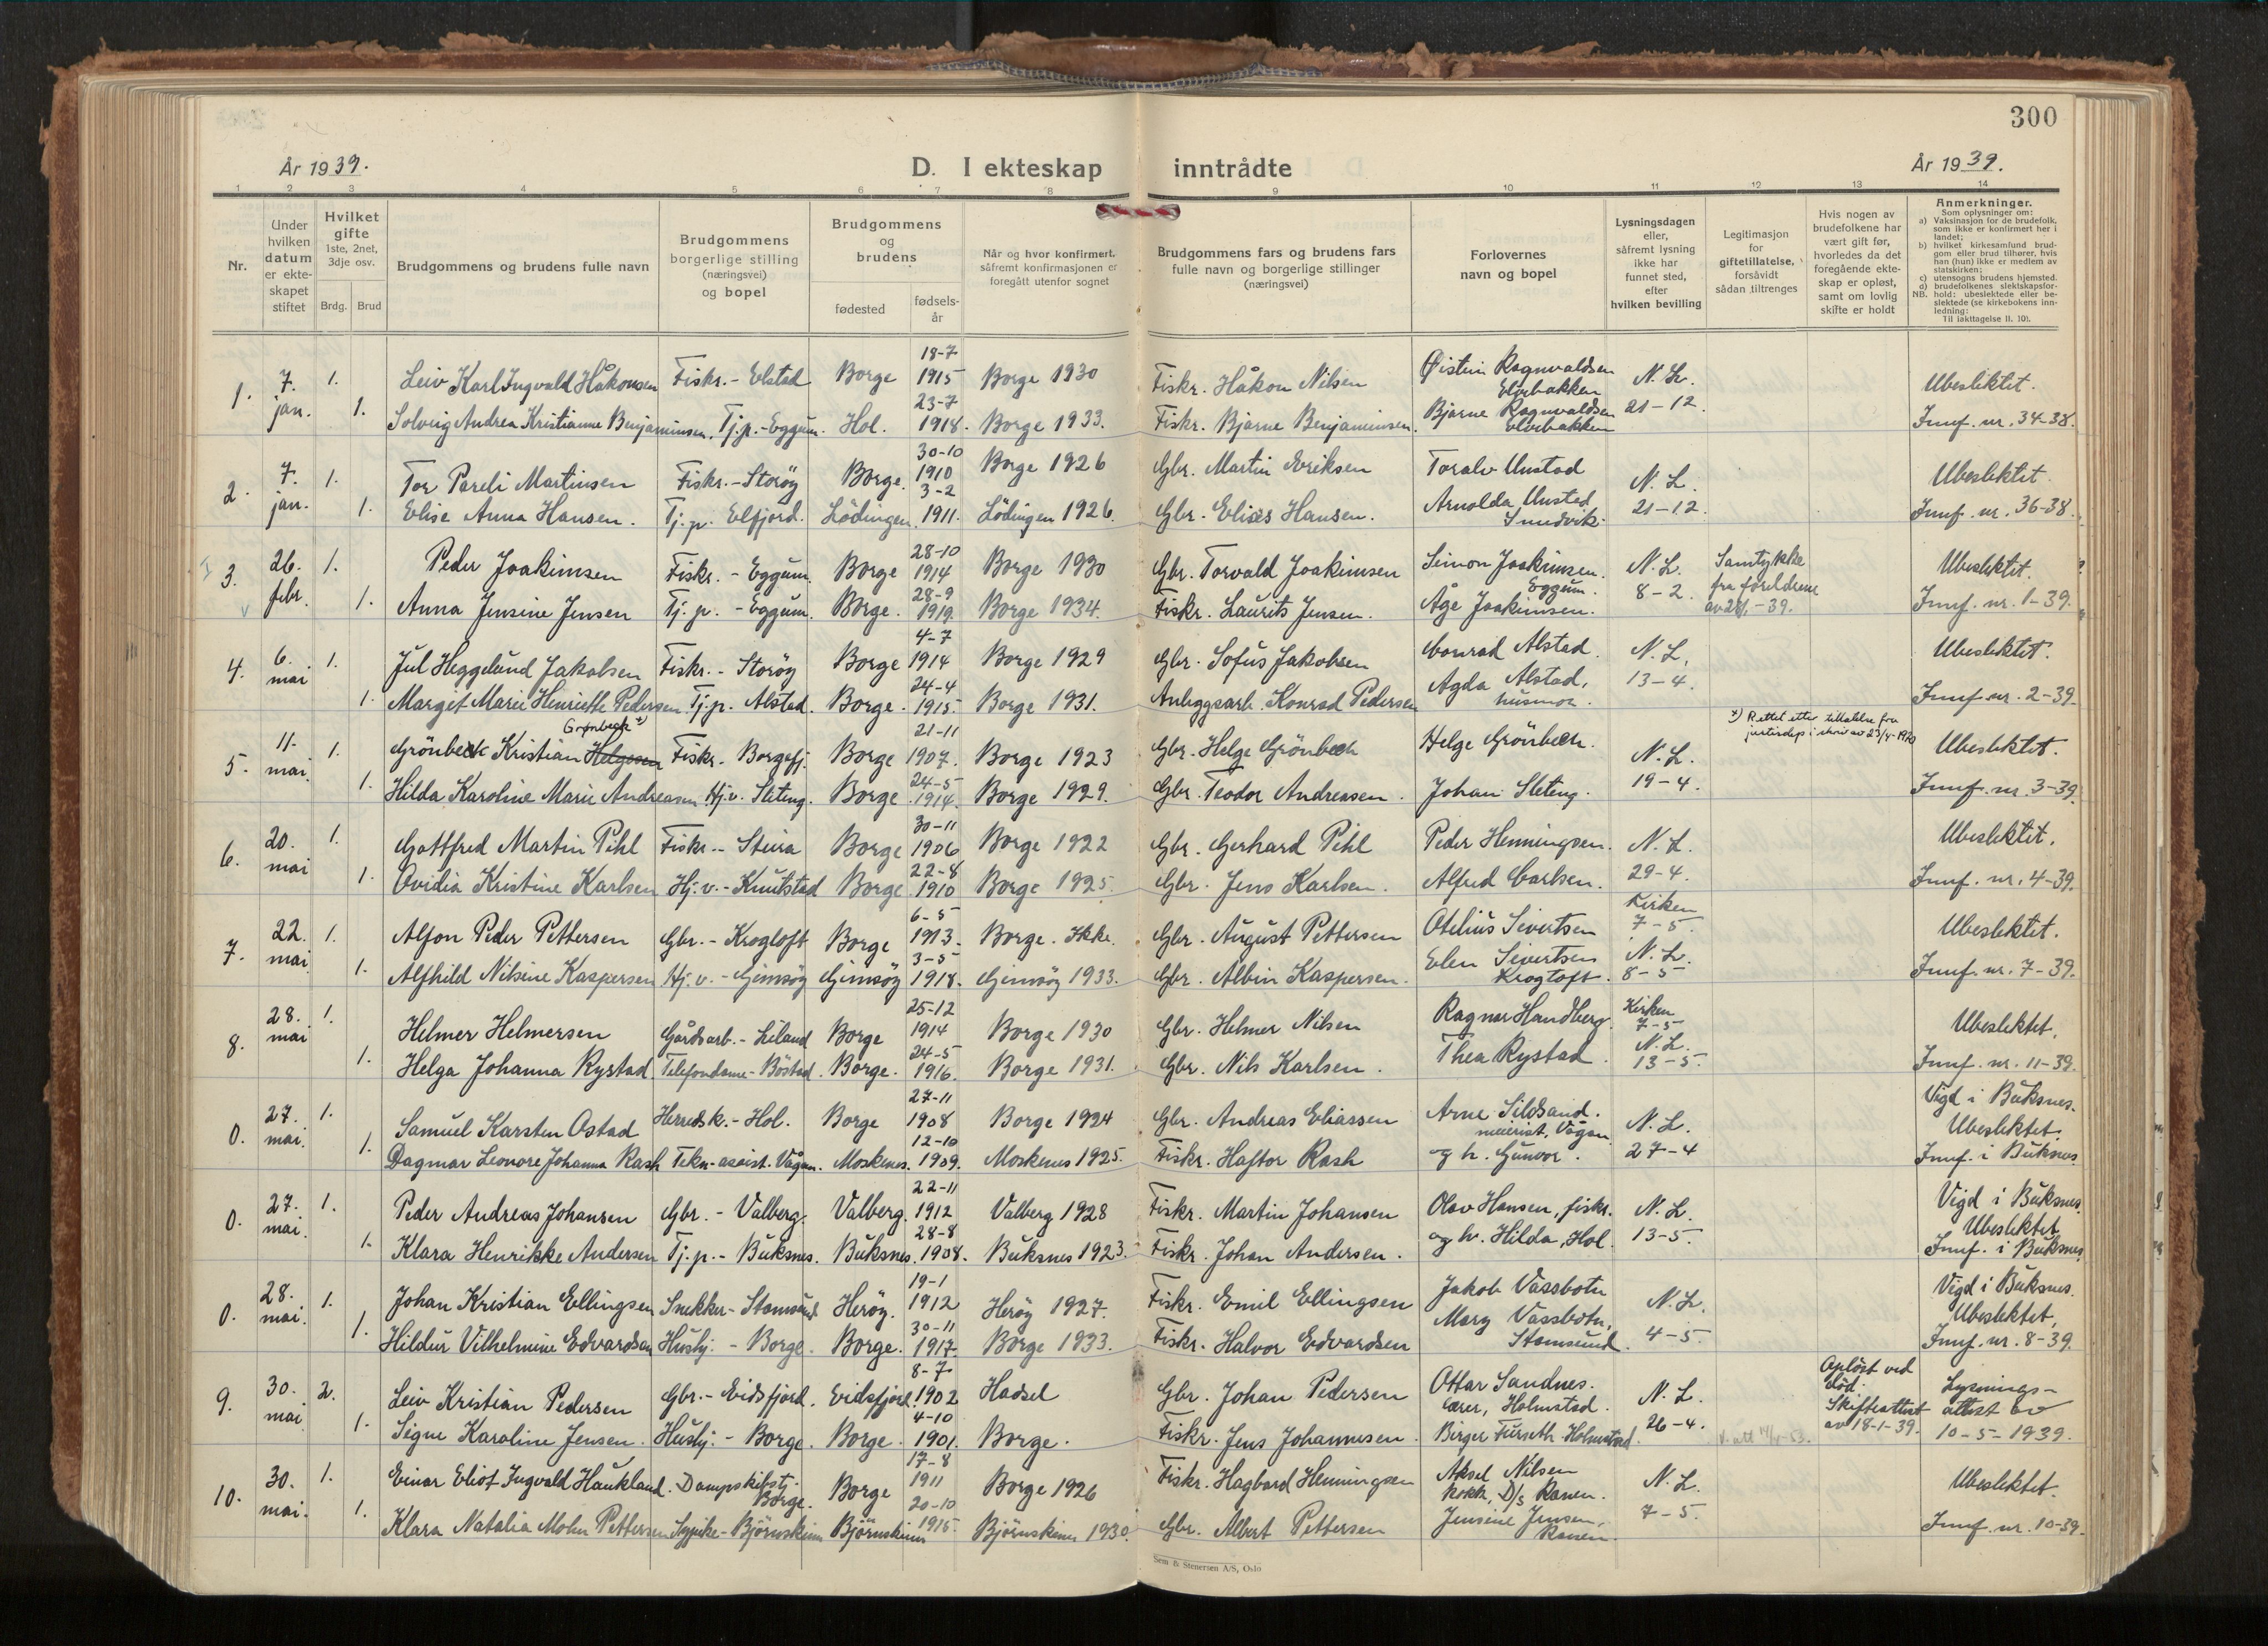 300
År 1939.
D. I ekteskap inntrådte
År 1939.
1 2 3 4 5 6 7 8 9 10 11 12 13 14
Nr.
Under hvilken datum er ekteskapet stiftet
Hvilket gifte
1ste, 2net, 3dje osv.
Brdg. Brud
Brudgommens og brudens fulle navn
Brudgommens borgerlige stilling (næringsvei) og bopel
Brudgommens og brudens
fødested
fødsels-år
Når og hvor konfirmert, såfremt konfirmasjonen er foregått utenfor sognet
Brudgommens fars og brudens fars fulle navn og borgerlige stillinger (næringsvei)
Forlovernes navn og bopel
Lysningsdagen eller, såfremt lysning ikke har funnet sted, efter hvilken bevilling
Legitimasjon for giftetillatelse, forsåvidt sådan tiltrenges
Hvis nogen av brudefolkene har vært gift før, hvorledes da det foregående ekteskap er opløst, samt om lovlig skifte er holdt
Anmerkninger.
Som oplysninger om:
a) Vaksinasjon for de brudefolk, som ikke er konfirmert her i landet;
b) hvilket kirkesamfund brudgom eller brud tilhører, hvis han (hun) ikke er medlem av statskirken;
c) utensogns brudens hjemsted.
d) brudefolkenes slektskapsforhold: ubeslektede eller beslektede (se kirkebokens innledning:
NB.
Til iakttagelse II. 10).
1. 7. jan. 1. Leiv Karl Ingvald Håkonsen Fiskr. - Elstad Borge 18-7 1915 Borge 1930 Fiskr. Håkon Nilsen Øistein Ragnvaldsen Elvebakken N. L. Ubeslektet.
1. Solveig Andrea Kristianne Benjaminsen. Tj.p. - Eggum. Hol. 23-7 1918. Borge 1933. Fiskr. Bjarne Benjaminsen. Bjarne Ragnvaldsen Elvebakken 21-12. Innf. nr. 34-38.
2. 7. jan. 1. Tor Pareli Martinsen Fiskr. - Storöy Borge. 30-10 1910 Borge 1926 Gbr. Martin Eriksen Toralv Unstad N. L. Ubeslektet.
1. Elise Anna Hansen. Tj.p. Elfjord. Lödingen. 3-2 1911. Lödingen 1926. Gbr. Elises Hansen. Arnolda Unstad 21-12. Innf. nr. 36-38.
3. 26. febr. 1. Peder Joakimsen Fiskr. - Eggum. Borge 28-10 1914 Borge 1930 Gbr. Torvald Joakimsen Simon Joakimsen. Eggum. N. L. Samtykke Ubeslektet.
1. Anna Jensine Jensen Tj. p. - Eggum. Borge. 28-9 1919. Borge 1934. Fiskr. Laurits Jensen. Åge Joakimsen. 8-2. fra foreldrene av 28/1-39. Innf. nr. 1-39.
4. 6. mai 1. Jul Heggelund Jakobsen Fiskr. - Storöy Borge 4-7 1914 Borge 1929 Gbr. Sofus Jakobsen Conrad Alstad. N. L. Ubeslektet.
1. Margit Marie Henriette Pedersen. Tj.p. Alstad. Borge. 24-4 1915. Borge 1931. Anleggsarb. Konrad Pedersen Agda Alstad, husmor. 13-4. Innf. nr. 2-39.
5. 11. mai. 1. Grönbeck Kristian Helgesen Grønbeck x) Fiskr. Borgefj. Borge 21-11 1907. Borge 1923 Gbr. Helge Grönbech Helge Grönbech. N. L. x) Rettet etter tillatelse fra justisdep i skriv av 23/4-1970 Ubeslektet.
1. Hilda Karoline Marie Andreasen. Hj.v. Sleteng. Borge 24-5 1914. Borge 1929. Gbr. Teodor Andreasen. Johan Sleteng. 19-4. Innf. nr. 3-39.
6. 20. mai 1. Gottfred Martin Pihl Fiskr. - Steira Borge 30-11 1906 Borge 1922 Gbr. Gerhard Pihl Peder Henningsen. N. L. Ubeslektet.
1. Ovidia Kristine Karlsen Hj. v. - Knutstad Borge 22-8 1910 Borge 1925. Gbr. Jens Karlsen. Alfred Carlsen. 29-4. Innf. nr. 4-39.
7. 22. mai 1. Alfon Peder Pettersen Gbr. - Krogtoft Borge 6-5 1913. Borge. Ikke. Gbr. August Pettersen Otelius Sivertsen Kirken 7-5. Ubeslektet.
1. Alfhild Nilsine Kaspersen Hj. v. - Gimsöy Gimsöy 3-5 1918. Gimsöy 1933. Gbr. Albin Kaspersen. Elen Sivertsen Krogtoft. N. L. 8-5 Innf. nr. 7-39.
8. 28. mai 1. Helmer Helmersen Gårdsarb. - Liland Borge 25-12 1914 Borge 1930 Gbr. Helmer Nilsen Ragnar Handberg. Kirken 7-5 Ubeslektet.
1. Helga Johanna Rystad Telefondame - Böstad. Borge. 24-5 1916. Borge 1931. Gbr. Nils Karlsen. Thea Rystad. N. L. 13-5. Innf. nr. 11-39.
0. 27. mai. 1. Samuel Karsten Ostad Herredsk. - Hol. Borge 27-11 1908 Borge 1924 Gbr. Andreas Eliassen Arne Sildsand. meierist, Vågan N. L. Vigd i Buksnes. Ubeslektet.
1. Dagmar Leonore Johanna Rash Tekn-assist. Vågan. Moskenes. 12-10 1909. Moskenes 1925. Fiskr. Haftor Rash og h. Gunvor. 27-4 Innf. i Buksnes
0. 27. mai. 1. Peder Andreas Johansen Gbr. - Valberg. Valberg. 22-11 1912 Valberg 1928 Fiskr. Martin Johansen Olav Hansen, fiskr. N. L. Vigd i Buksnes. Ubeslektet
1. Klara Henrikke Andersen Tj.p. - Buksnes. Buksnes. 28-8 1908. Buksnes 1923. Fiskr. Johan Andersen. og h. Hilda, Hol. 13-5. Innf. i Buksnes
0. 28. mai. 1. Johan Kristian Ellingsen Snekker - Stamsund. Heröy. 19-1 1912 Heröy 1927. Fiskr. Emil Ellingsen Jakob Vassbotn N. L. Vigd i Buksnes. Ubeslektet,
1. Hildur Vilhelmine Edvardsen Hushj. - Borge. Borge. 30-11 1917. Borge 1933. Fiskr. Halvor Edvardsen Mary Vassbotn, Stamsund. 4-5. Innf. nr. 8-39.
9. 30. mai 2. Leiv Kristian Pedersen Gbr. - Eidsfjord. Eidsfjord. 8-7 1902 Hadsel Gbr. Johan Pedersen Ottar Sandnes. lærer, Holmstad. N. L. Opløst ved död. Lysnings-
1. Signe Karoline Jensen. Hushj. - Borge. Borge. 4-10 1901. Borge. Fiskr. Jens Johannesen. Birger Furseth Holmstad. 26-4. Skifteattest av 18-1-39. attest av 10-5-1939.
10. 30. mai. 1. Einar Eliot Ingvald Haukland. Dampskibstj. Borge. Borge 17-8 1911 Borge 1926 Fiskr. Hagbard Henningsen Aksel Nilsen kokk, D/s Ranen. N. L. Ubeslektet.
1. Klara Natalia Molin Pettersen Sypike - Björnskinn Björnskinn 20-10 1915. Björnskinn 1930. Gbr. Albert Pettersen Jensine Jensen, Ranen. 7-5. Innf. nr. 10-39.
Sem & Stenersen A/S, Oslo